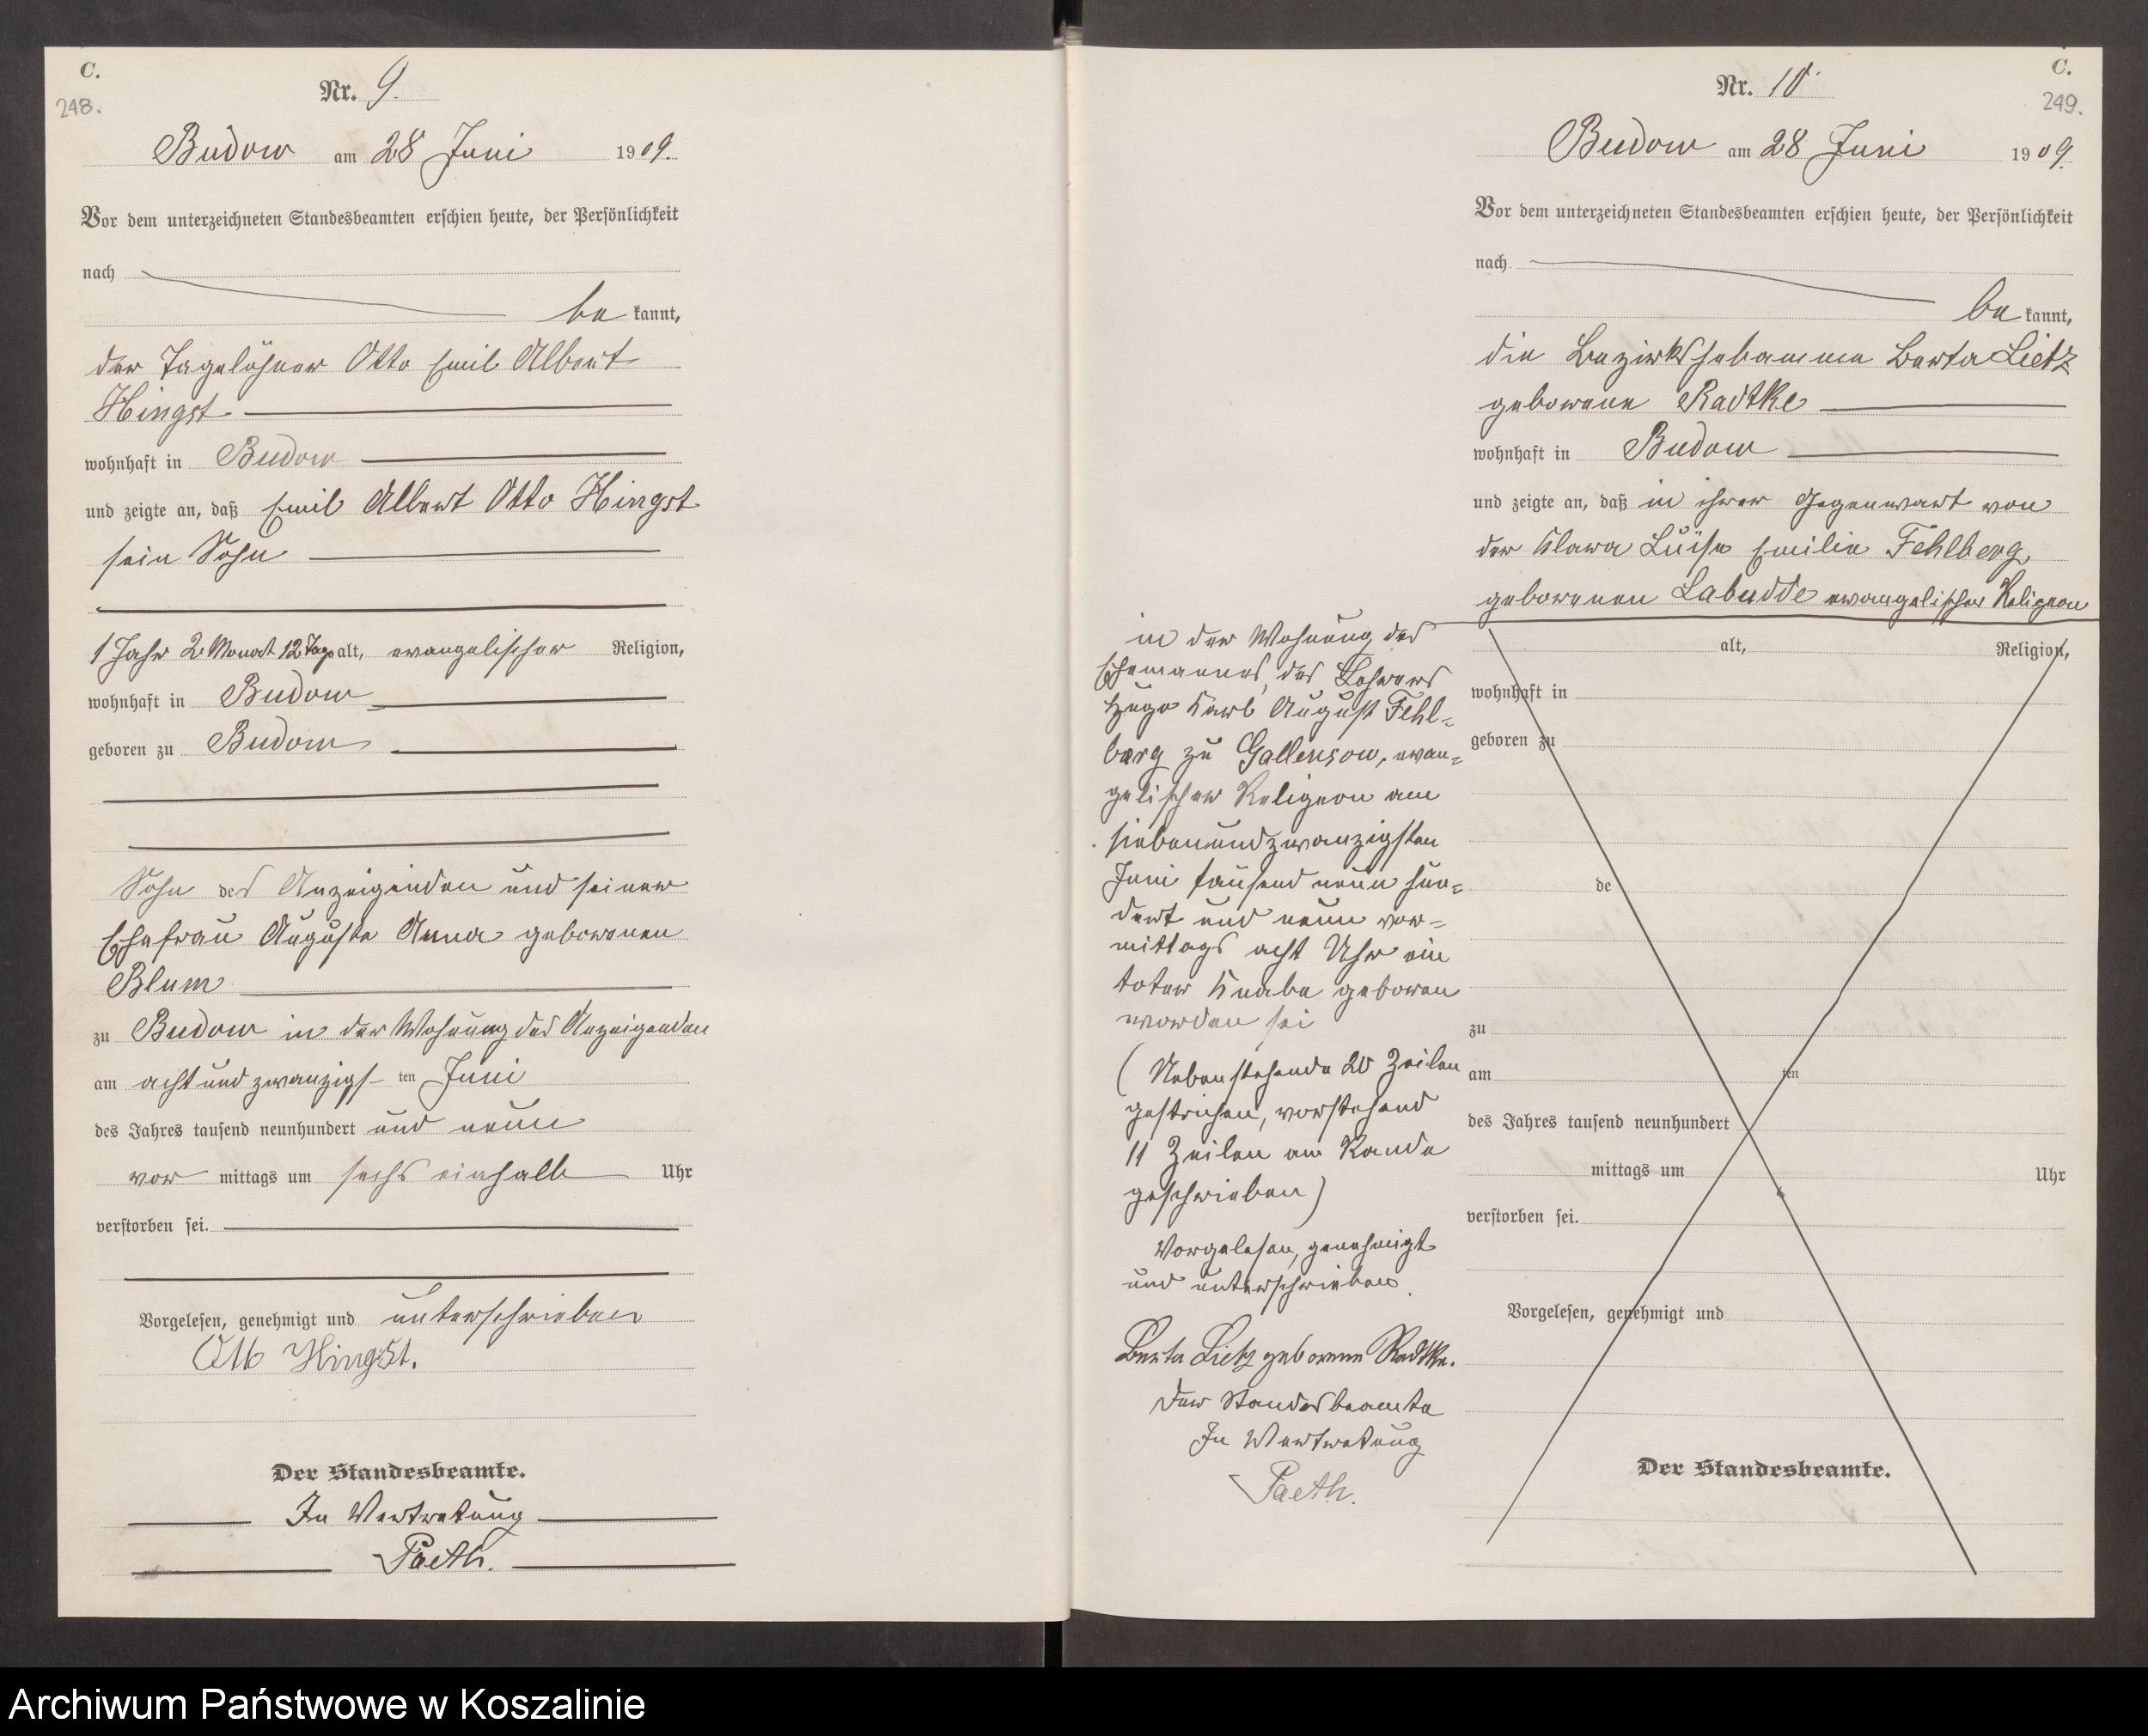 C.
248.
Nr. 9.
Budow am 28 Juni 1909.
Vor dem unterzeichneten Standesbeamten erschien heute, der Persönlichkeit
nach
be kannt,
der Tagelöhner Otto Emil Albert
Hingst
wohnhaft in Budow
und zeigte an, daß Emil Albert Otto Hingst
sein Sohn
1 Jahr 2 Monat 12 Tage alt, evangelischer Religion,
wohnhaft in Budow
geboren zu Budow
Sohn des Anzeigenden und seiner
Ehefrau Auguste Anna geborenen
Blum
zu Budow in der Wohnung des Anzeigenden
am acht und zwanzigs- ten Juni
des Jahres tausend neunhundert und neun
vor mittags um sechs einhalb Uhr
verstorben sei.
Vorgelesen, genehmigt und unterschrieben
Otto Hingst.
Der Standesbeamte.
In Vertretung
Paeth.
C.
249.
Nr. 10
Budow am 28 Juni 1909.
Vor dem unterzeichneten Standesbeamten erschien heute, der Persönlichkeit
nach
be kannt,
die Bezirkshebamme Berta Lietz
geborene Radtke
wohnhaft in Budow
und zeigte an, daß in ihrer Gegenwart von
der Klara Luise Emilie Fehlberg,
geborenen Labudde evangelischer Religion
in der Wohnung des
Ehemannes, des Lehrers
Hugo Karl August Fehl-
berg zu Gallensow, evan-
gelischer Religion am
siebenundzwanzigsten
Juni tausend neun hun-
dert und neun vor-
mittags acht Uhr ein
toter Knabe geboren
worden sei
(Nebenstehende 20 Zeilen
gestrichen, vorstehend
11 Zeilen am Rande
geschrieben)
Vorgelesen, genehmigt
und unterschrieben.
Berta Lietz geborene Radtke.
Der Standesbeamte
In Vertretung
Paeth.
alt, Religion,
wohnhaft in
geboren zu
de
zu
am ten
des Jahres tausend neunhundert
mittags um Uhr
verstorben sei.
Vorgelesen, genehmigt und
Der Standesbeamte.
Archiwum Państwowe w Koszalinie